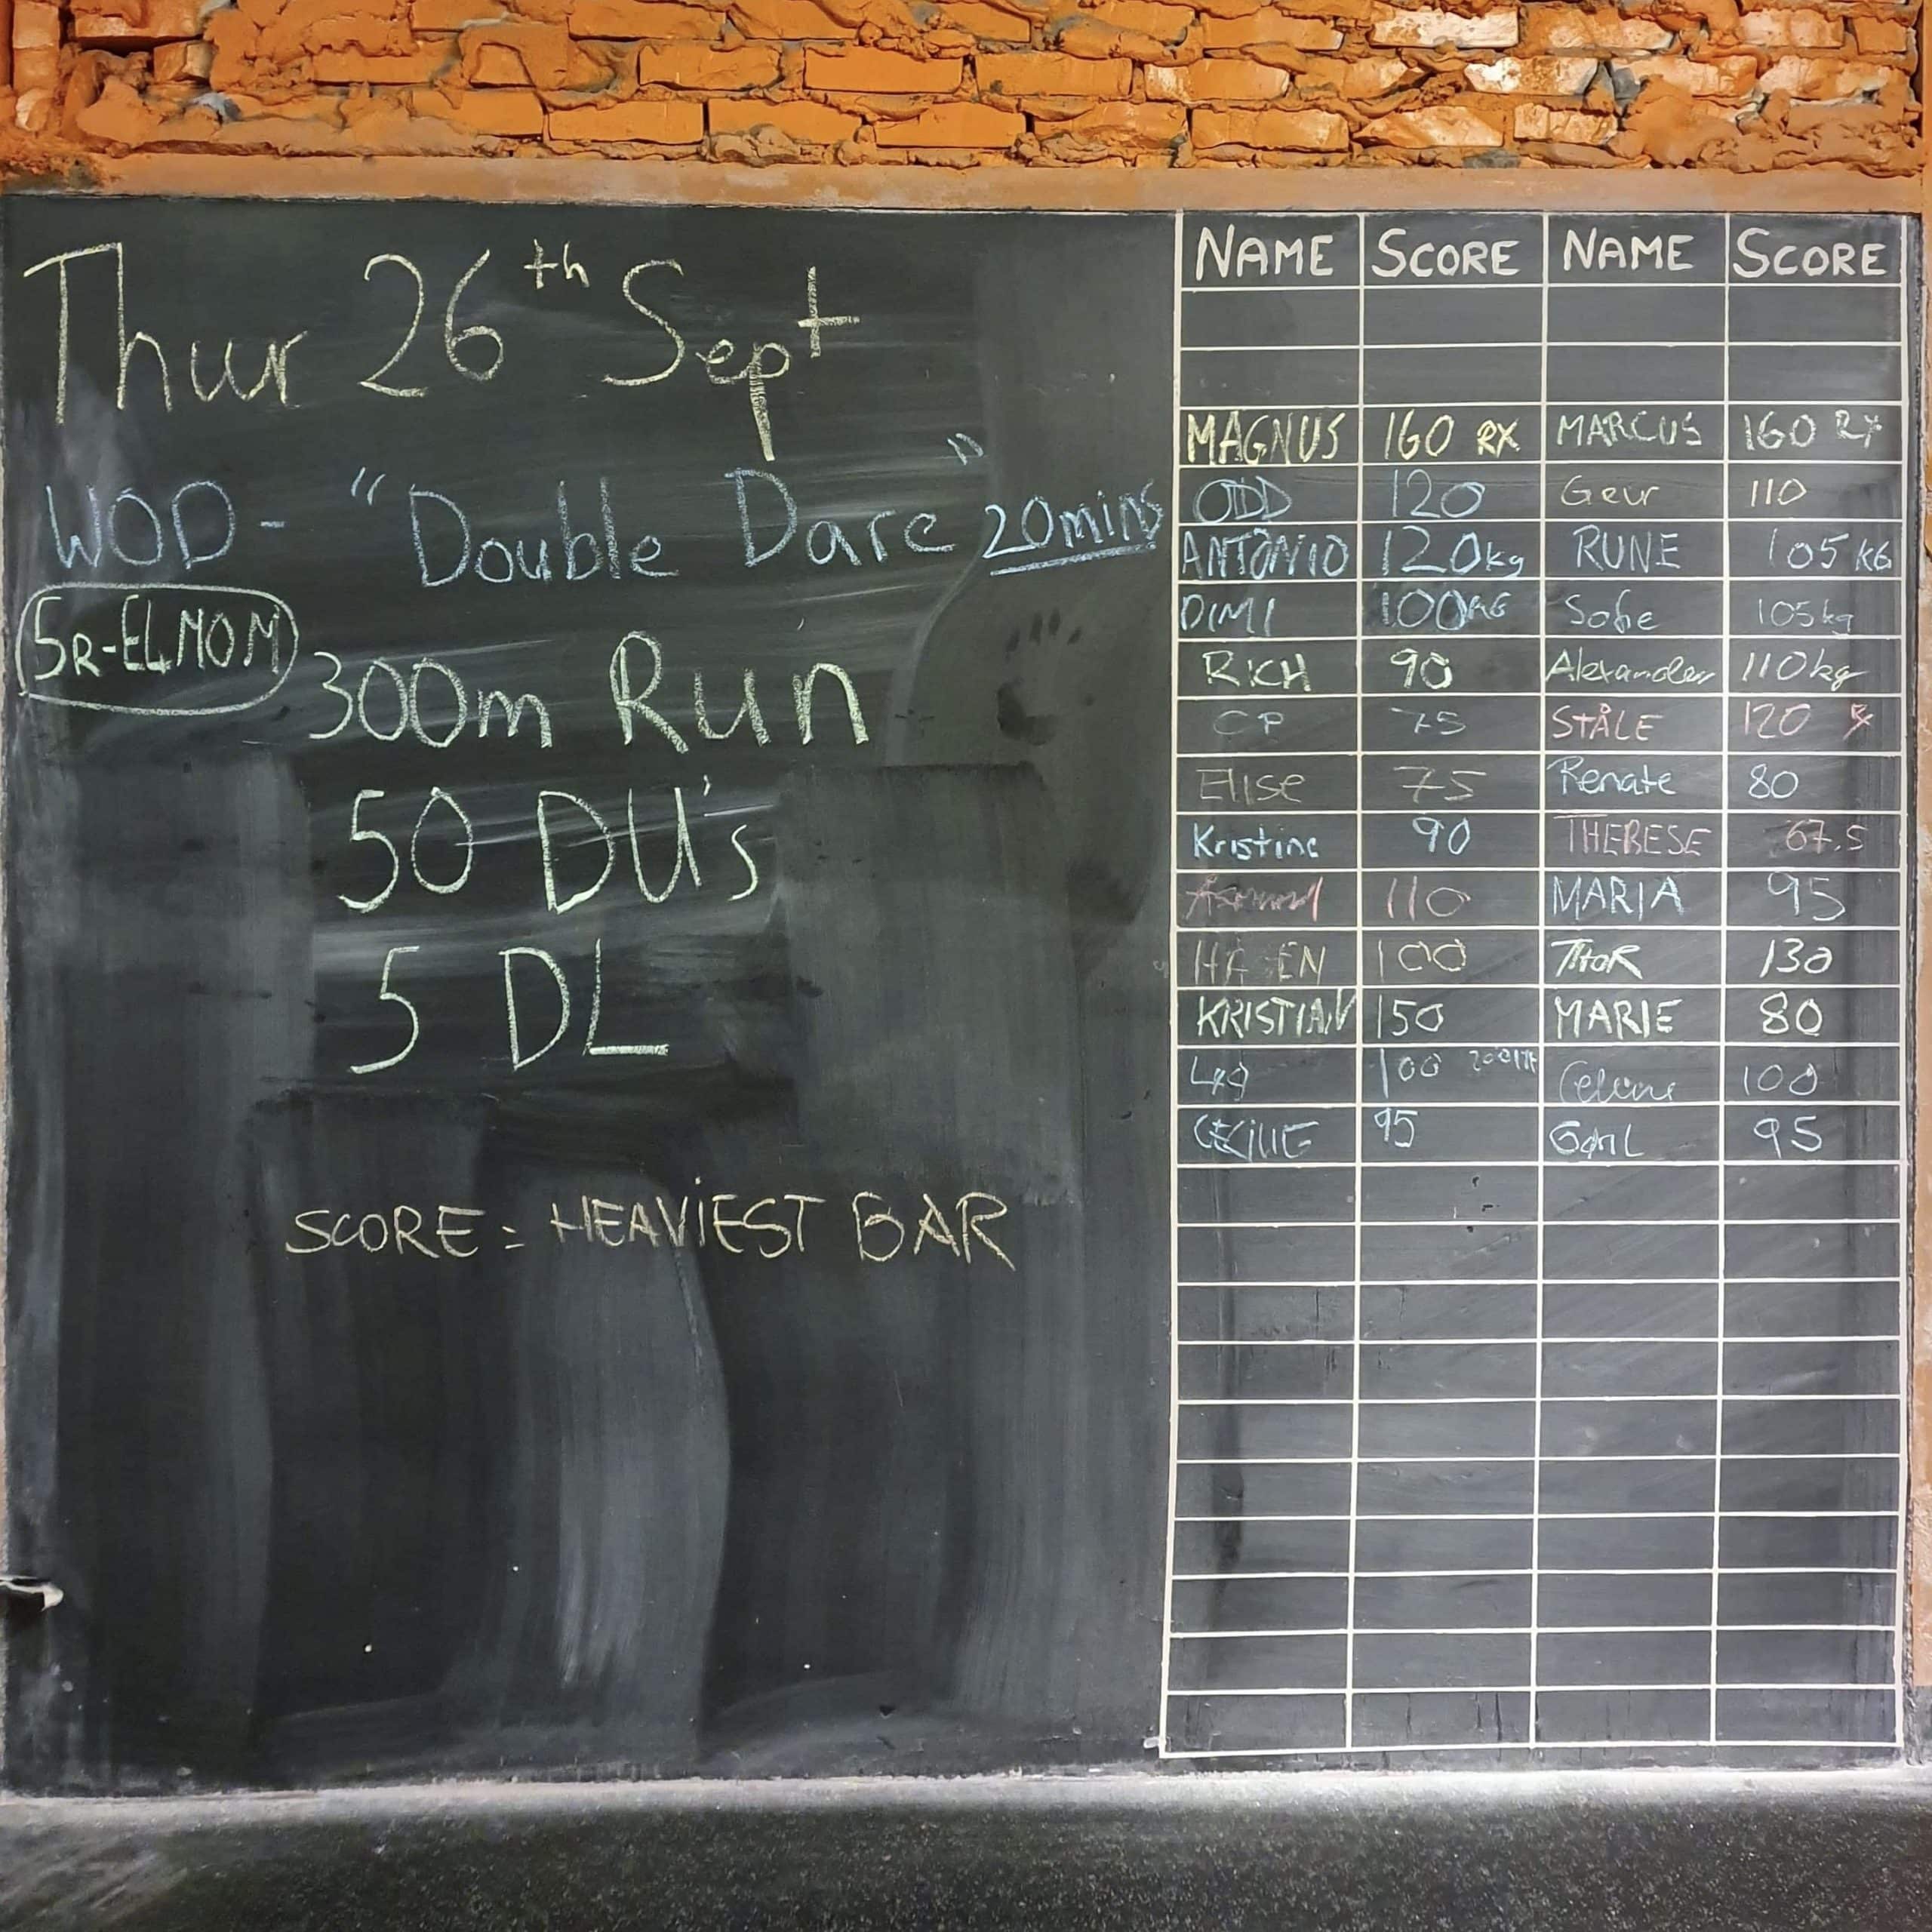 Thur 26th Sept
WOD - "Double Dare" 20mins
5R-E4MOM
300m Run
50 DU's
5 DL
SCORE = HEAVIEST BAR
NAME SCORE NAME SCORE
MAGNUS 160 RX MARCUS 160 RX
ODD 120 Geir 110
ANTÓNIO 120kg RUNE 105 KG
DIMI 100KG Sofie 105kg
RICH 90 Alexander 110kg
CP 75 STÅLE 120 RX
Elise 75 Renate 80
Kristine 90 THERESE 67.5
110 MARIA 95
100 THOR 130
KRISTIAN 150 MARIE 80
100 100
CECILIE 95 95